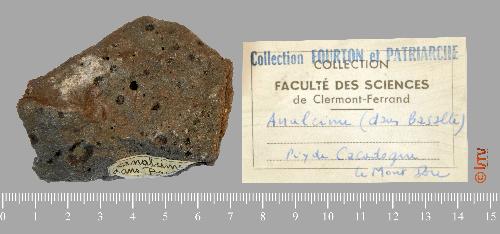 Collection FOURTON et PATRIARCHE
COLLECTION
FACULTÉ DES SCIENCES
de Clermont-Ferrand
Analcime (dans Basalte)
Puy de Cacadogne
le Mont Dore
Analcime
dans
0 1 2 3 4 5 6 7 8 9 10 11 12 13 14 15